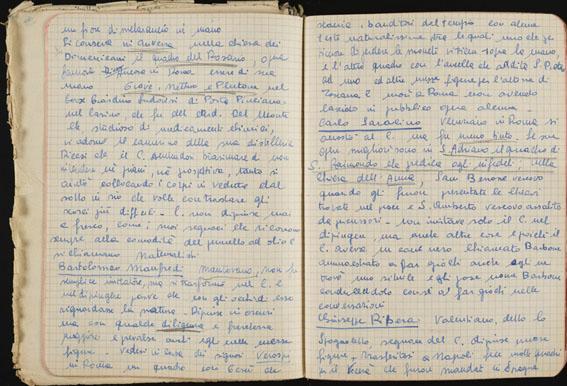 un fiore di melarancio in mano
Si conserva in Anversa nella chiesa dei
Domenicani il quadro del Rosario, opera
essere di sua
mano Giove, Nettuno e Plutone nel
Giardino Ludovisi di Porta Pinciana
nel casino, che fu del Card. Del Monte
che studioso di medicamenti chimici,
vi adornò il camerino della sua distilleria
Dicesi che il C. biasimare di non
intendere né piani, né prospettiva, tanto si
aiutò collocando i corpi in veduta dal
sotto in su che volle contrastare gli
scorti più difficili - C. non dipinse mai
a fresco, come i suoi seguaci che si
sempre alla comodità del pennello ad olio
si chiamano naturalisti
Bartolomeo Manfredi mantovano, non fu
semplice imitatore, ma si trasformò nel C. e
nel dipingere parve che con gli occhi di esso
riguardasse la natura. Dipinse
ma con qualche diligenza e freschezza
maggiore e prevalse anch'egli nelle mezze
figure. Vedesi in casa dei signori Verospi
in Roma un quadro con Gesù che
scaccia i banditori del tempio con alcune
teste naturalissime tra le quali uno che
le monete vi tiene sopra la mano,
e l'altro quadro con l'ancella che addita S. Pietro
ad uno ed altre mezze figure per l'altezza di
Toscana e morì a Roma non avendo
lasciato in pubblico opera alcuna
Carlo Saracino Veneziano in Roma si
accostò al C. ma fu meno tinto. Le sue
opere migliori sono in S. Adriano il quadro di
S. Raimondo che predica agli infedeli; nella
chiesa dell'Anima San Benone vescovo
quando gli furono presentate le chiavi
trovate nel pesce e S. Lamberto vescovo assalito
da percussori - non imitava solo il C. nel
dipingere, ma anche altre cose e poiché il
C. aveva un cane nero chiamato Barbone
ammaestrato a far giochi anche egli ne
trovò uno simile e gli pose nome Barbone
conducendolo con sé a far giochi nelle
conversazioni
Giuseppe Ribera: Valentiano, detto lo
Spagnoletto, seguace del C. dipinse mezze
figure. Trasferitosi a Napoli fece molti quadri
per il Viceré che furono mandati in Spagna